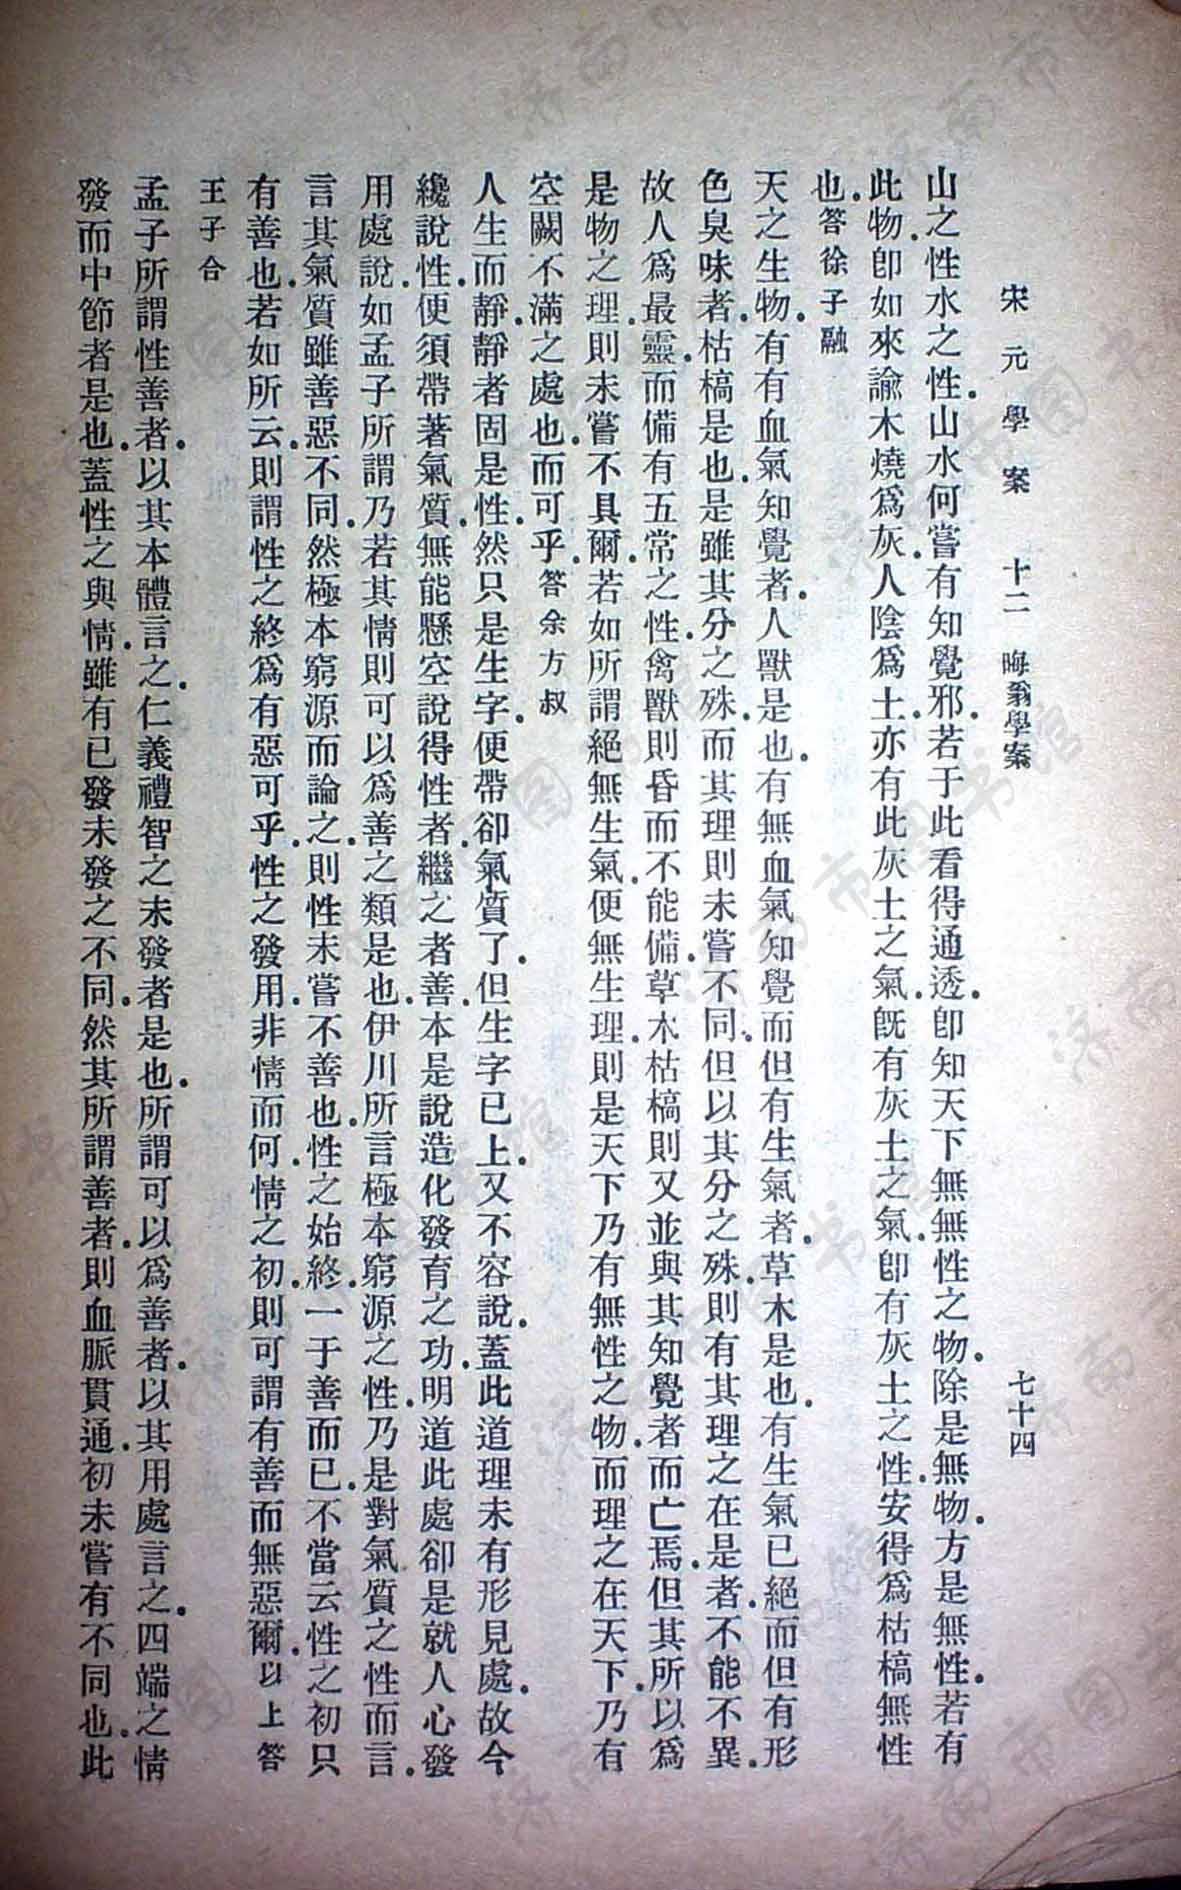 宋元學案 十二 晦翁學案 七十四
山之性水之性.山水何嘗有知覺邪.若于此看得通透.卽知天下無無性之物.除是無物.方是無性.若有
此物.卽如來諭木燒爲灰.人陰爲土.亦有此灰土之氣.旣有灰土之氣.卽有灰土之性.安得爲枯槁無性
也.答徐子融
天之生物.有有血氣知覺者.人獸是也.有無血氣知覺而但有生氣者.草木是也.有生氣已絕而但有形
色臭味者.枯槁是也.是雖其分之殊.而其理則未嘗不同.但以其分之殊.則有其理之在是者.不能不異.
故人爲最靈.而備有五常之性.禽獸則昏而不能備.草木枯槁則又並與其知覺者而亡焉.但其所以爲
是物之理.則未嘗不具爾.若如所謂絕無生氣.便無生理.則是天下乃有無性之物.而理之在天下.乃有
空闕不滿之處也.而可乎.答余方叔
人生而靜.靜者固是性.然只是生字.便帶卻氣質了.但生字已上.又不容說.蓋此道理未有形見處.故今
纔說性.便須帶著氣質.無能懸空說得性者.繼之者善.本是說造化發育之功.明道此處卻是就人心發
用處說.如孟子所謂乃若其情則可以爲善之類是也.伊川所言極本窮源之性.乃是對氣質之性而言.
言其氣質雖善惡不同.然極本窮源而論之.則性未嘗不善也.性之始終.一于善而已.不當云性之初只
有善也.若如所云.則謂性之終爲有惡可乎.性之發用.非情而何.情之初.則可謂有善而無惡爾.以上答
王子合
孟子所謂性善者.以其本體言之.仁義禮智之未發者是也.所謂可以爲善者.以其用處言之.四端之情
發而中節者是也.蓋性之與情.雖有已發未發之不同.然其所謂善者.則血脈貫通.初未嘗有不同也.此